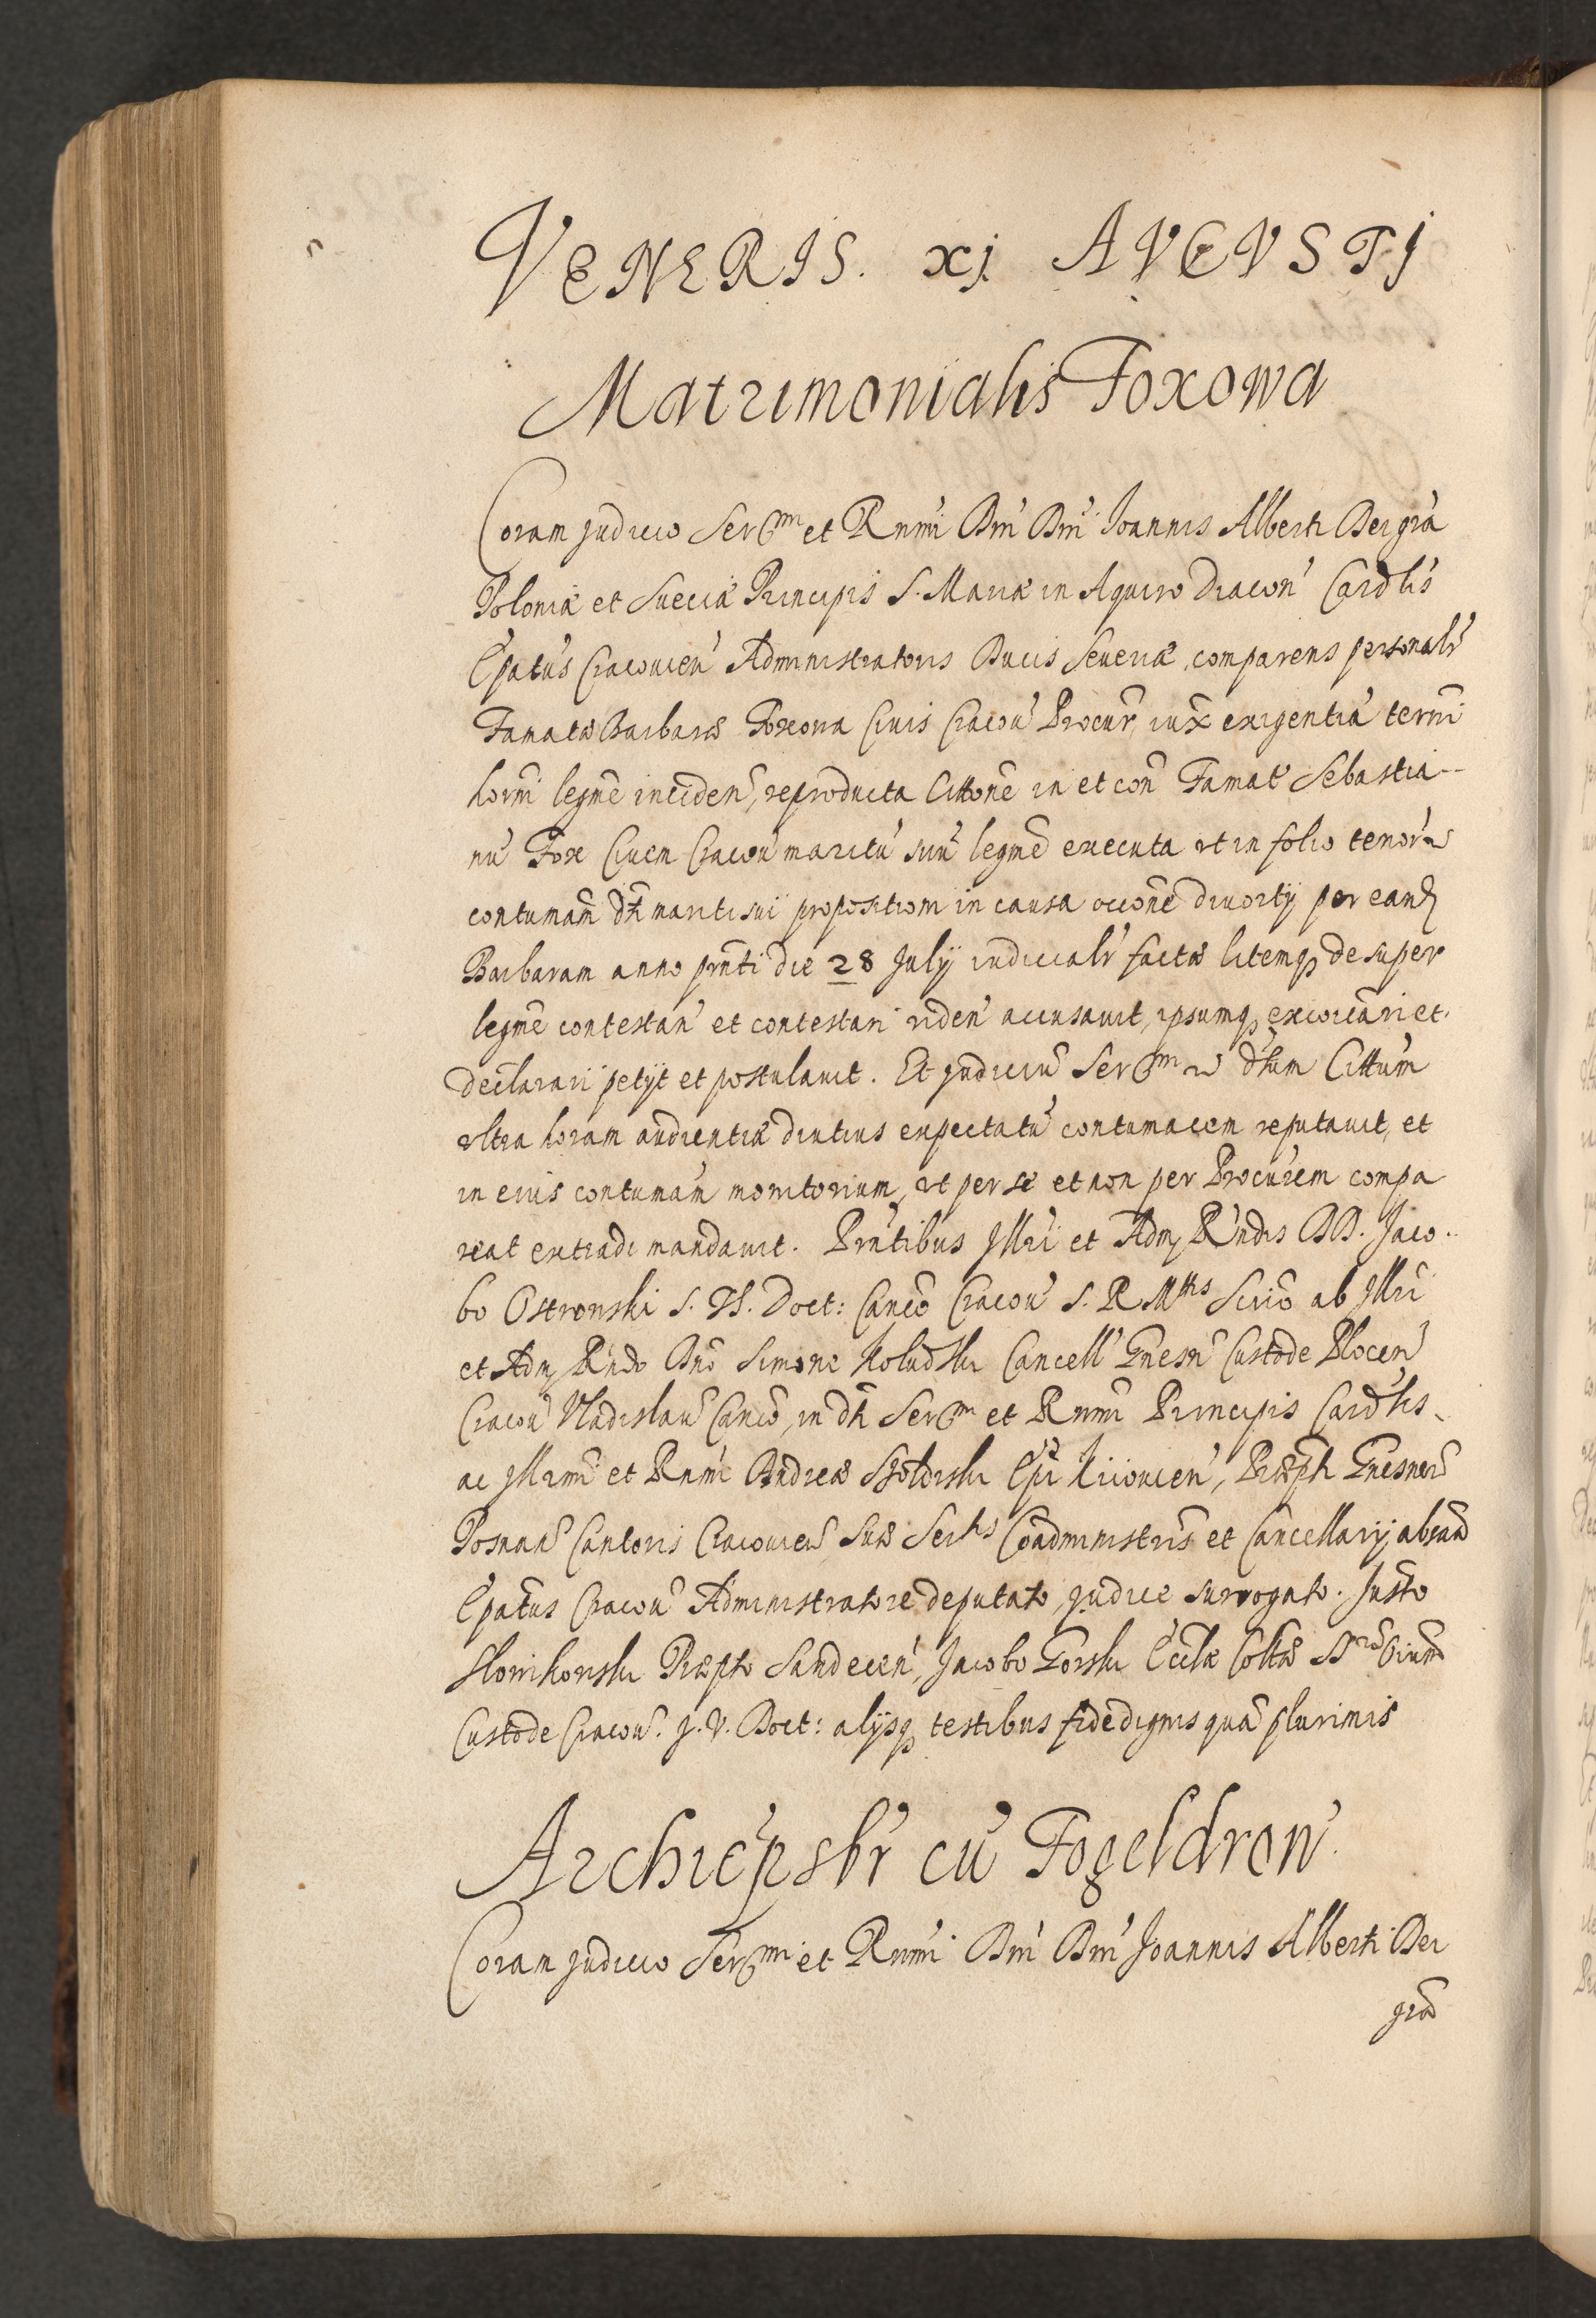 VENERIS. xj AVGVSTJ
Matrimonialis Foxowa
Coram Judicio Ser^mi et Rnmi Dni Dni Joannis Alberti Dei gra
Poloniæ et Sueciæ Principis S. Mariæ in Aquiro Diacon Cardlis
Epatus Cracouien Administratoris Ducis Seueriæ, comparens personalr
Famata Barbara Foxowa Ciuis Cracou Procur, iux exigentia termi
horni legme inciden, reproducta Cittone in et con Famat Sebastia--
nu Fox Ciuem Cracou maritu suu legme executa ut in folio tenoris
contumam dti mariti sui propositioni in causa occone diuortij per eand
Barbaram anno pnti die 28 July iudicialr facta litemq desuper
legme contestan et contestari viden accusauit, ipsumq excoicari et
declarari petijt et postulauit. Et Judiciu Ser^mi dtum Cittum
vltra horam audientiæ diutius expectatu contumacem reputauit, et
in eius contumam monitorium, vt per se et non per Procurem compa
reat extradi mandauit. Pntibus Jllri et Adm Rndis DD. Jaco..
bo Ostronski S. Th. Doct: Canco Cracou S. R Mtis Scrio ab Jllri
et Adm Rndo Dno Simone Koludzki Cancell Gnesn Custode Plocen
Cracou Vladislau Canco, in dti Ser^mi et Rnmi Principis Cardlis
ac Jllrmi et Rnmi Andreæ Szołdrski Epi Kiiouien, Præpti Gnesnen
Posnan Cantoris Cracouien Suæ Sertis Coadministris et Cancellarij absna
Epatus Cracou Administratore deputato, Judice surrogato. Justo
Słowikowski Præpto Sandecen, Jacobo Gorski Eccłæ Collæ SS^ru Oium
Custode Cracou. J. V. Doct: alijsq testibus fidedignis qua plurimis
Archiepsbr cu Fogeldrow
Coram Judicio Ser^mi et Rnmi Dni Dni Joannis Alberti Dei
gra